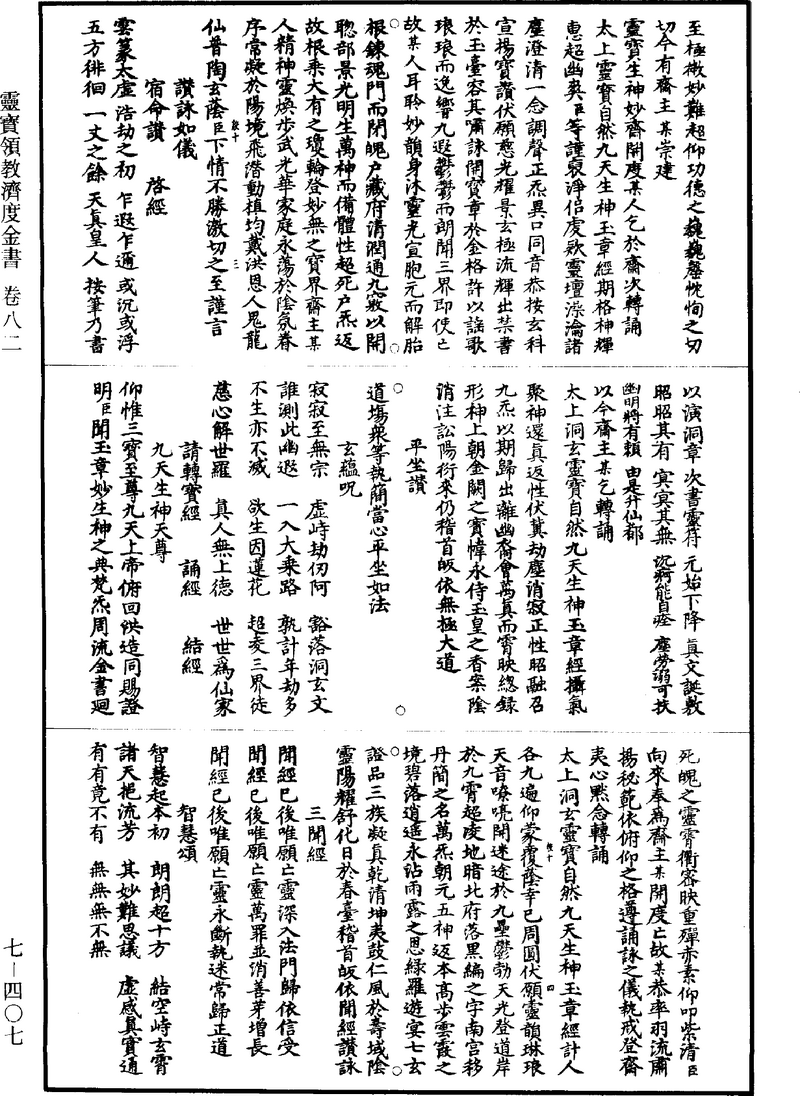 至極微妙難超仰功德之巍巍罄忱恂之切
切今有齋主某崇建
靈寶生神妙齋開度某人乞於齋次轉誦
太上靈寶自然九天生神玉章經期格神輝
惠超幽爽臣等謹裒淨侶虔歌靈壇澡瀹諸
塵澄清一念調聲正炁異口同音恭按玄科
宣揚寶讚伏願慈光耀景玄極流輝出禁書
於玉臺容其肅詠開寶章於金格許以謠歌
琅琅而逸響九遐鬱鬱而朗聞三界即使亡
故某人耳聆妙韻身沐靈光宣胞元而解胎
根鍊魂門而閉魄戶藏府清潤通九竅以開
聰部景光明生萬神而備體性超死戶炁返
故根乘大有之瓊輪登妙無之寶界齋主某
人精神靈煥步武光華家庭永蕩於陰氛眷
序常凝於陽境飛潛動植均戴洪恩人鬼龍
仙普陶玄蔭臣下情不勝激切之至謹言
讚詠如儀
宿命讚 啓經
雲篆太虛 浩劫之初 乍遐乍邇 或沉或浮
五方徘徊 一丈之餘 天真皇人 按筆乃書
以演洞章 次書靈符 元始下降 真文誕敷
昭昭其有 冥冥其無 沉痾能自痊 塵勞溺可扶
幽明將有賴 由是升仙都
以今齋主某乞轉誦
太上洞玄靈寶自然九天生神玉章經攝氣
聚神還真返性伏冀劫塵消寂正性昭融召
九炁以期歸出離幽裔會萬真而霄映總錄
形神上朝金闕之寶幃永侍玉皇之香案陰
消注訟陽衍來仍稽首皈依無極大道
平坐讚
道場衆等執簡當心平坐如法
玄蘊呪
寂寂至無宗 虛峙劫仞阿 豁落洞玄文
誰測此幽遐 一入大乘路 孰計年劫多
不生亦不滅 欲生因蓮花 超凌三界徒
慈心解世羅 真人無上德 世世爲仙家
請轉寶經 誦經 結經
九天生神天尊
仰惟三寶至尊九天上帝俯回洪造同賜證
明臣聞玉章妙生神之典梵炁周流金書廻
死魄之靈霄衢密映重殫赤素仰叩紫清臣
向來奉爲齋主某開度亡故某恭率羽流肅
揚秘範依俯仰之格遵誦詠之儀執戒登齋
夷心默念轉誦
太上洞玄靈寶自然九天生神玉章經計人
各九遍仰蒙覆蔭幸已周圓伏願靈韻琳琅
天音嘹喨開迷途於九壘鬱勃天光登道岸
於九霄超凌地暗北府落黑編之字南宮移
丹簡之名萬炁朝元五神返本高步雲霞之
境碧落逍遙永沾雨露之恩綠羅遊宴七玄
證品三族凝真乾清坤夷鼓仁風於壽域陰
靈陽耀舒化日於春臺稽首皈依聞經讚詠
三聞經
聞經已後唯願亡靈深入法門歸依信受
聞經已後唯願亡靈萬罪並消善芽增長
聞經已後唯願亡靈永斷執迷常歸正道
智慧頌
智慧起本初 朗朗超十方 結空峙玄霄
諸天挹流芳 其妙難思議 虛感真實通
有有竟不有 無無無不無
靈寶領教濟度金書 卷八二
七－四〇七